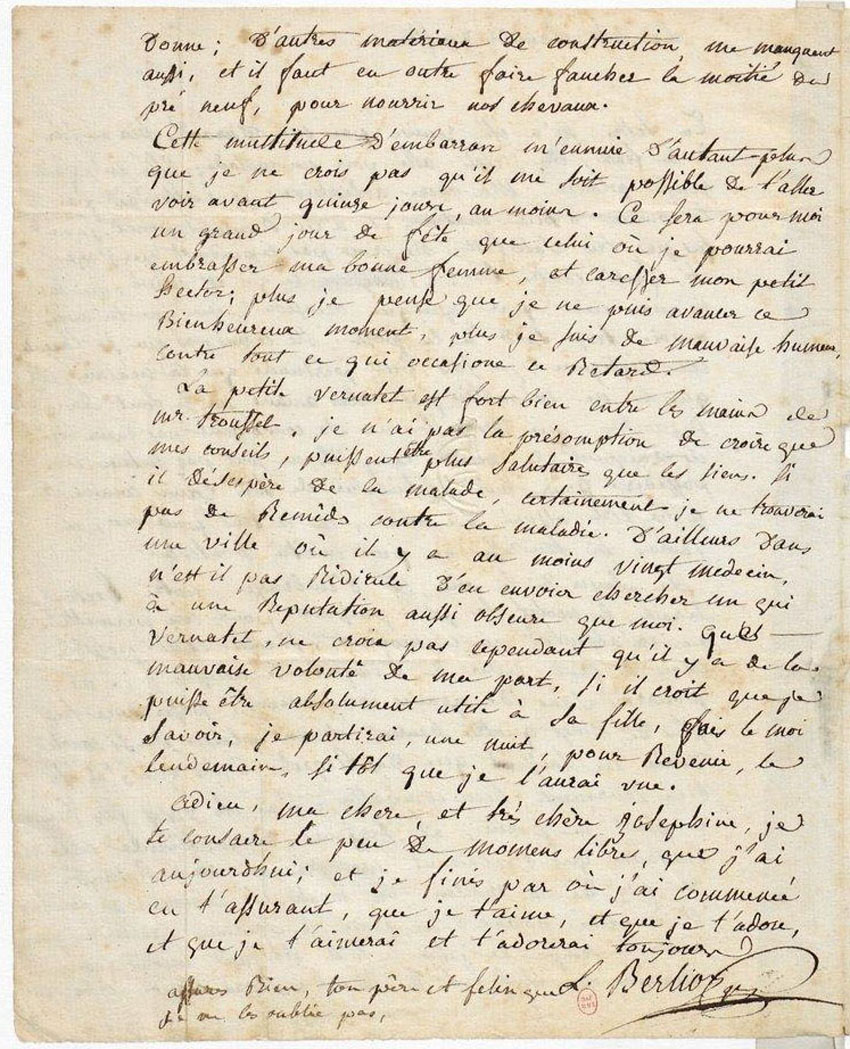 Donne; D'autres matériaux de construction me manquent
aussi, et il faut en outre faire faucher la moitié du
pré neuf, pour nourrir nos chevaux.
Cette multitude D'embarras m'ennuie D'autant plus
que je ne crois pas qu'il me soit possible de t'aller
voir avant quinze jours, au moins. Ce sera pour moi
un grand jour de fête que celui où je pourrai
embrasser ma bonne femme, et caresser mon petit
hector; plus je pense que je ne puis avancer ce
Bienheureux moment, plus je suis de mauvaise humeur,
contre tout ce qui occasione ce Retard.
La petite vernatet est fort bien entre les mains de
mr. troussel, je n'ai pas la présomption de croire que
mes conseils, puissent être plus salutaires que les siens. si
il désespère de la malade, certainement je ne trouverai
pas de Remêds contre la maladie. D'ailleurs Dans
une ville où il y a au moins vingt medecin,
n'est il pas Ridicule D'en envoier chercher un qui
à une Reputation aussi obscure que moi. que
vernatet, ne croie pas cependant qu'il y a de la
mauvaise volonté de ma part, si il croit que je
puisse être absolument utile à sa fille, fais le moi
savoir, je partirai, une nuit, pour Revenir, le
lendemain, si tôt que je l'aurai vue.
adieu, ma chere, et très chère josephine, je
te consacre le peu de momens libres, que j'ai
aujourdhui; et je finis par où j'ai commencé
en t'assurant, que je t'aime, et que je t'adore,
et que je t'aimerai et t'adorerai toujours
L. Berlioz
assures Bien, ton père et felix que
je ne les oublie pas,